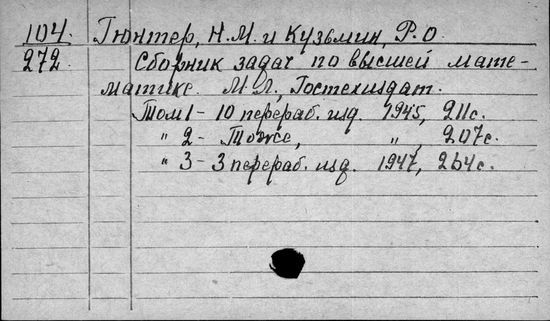 104. Гюнтер, Н.М. и Кузьмин, Р.О.
272 Сборник задач по высшей мате-
матике. М.Л., Гостехиздат.
Том 1 - 10 перераб. изд. 1945, 211с.
" 2 - То же, ", 207с.
" 3 - 3 перераб. изд. 1947, 264с.